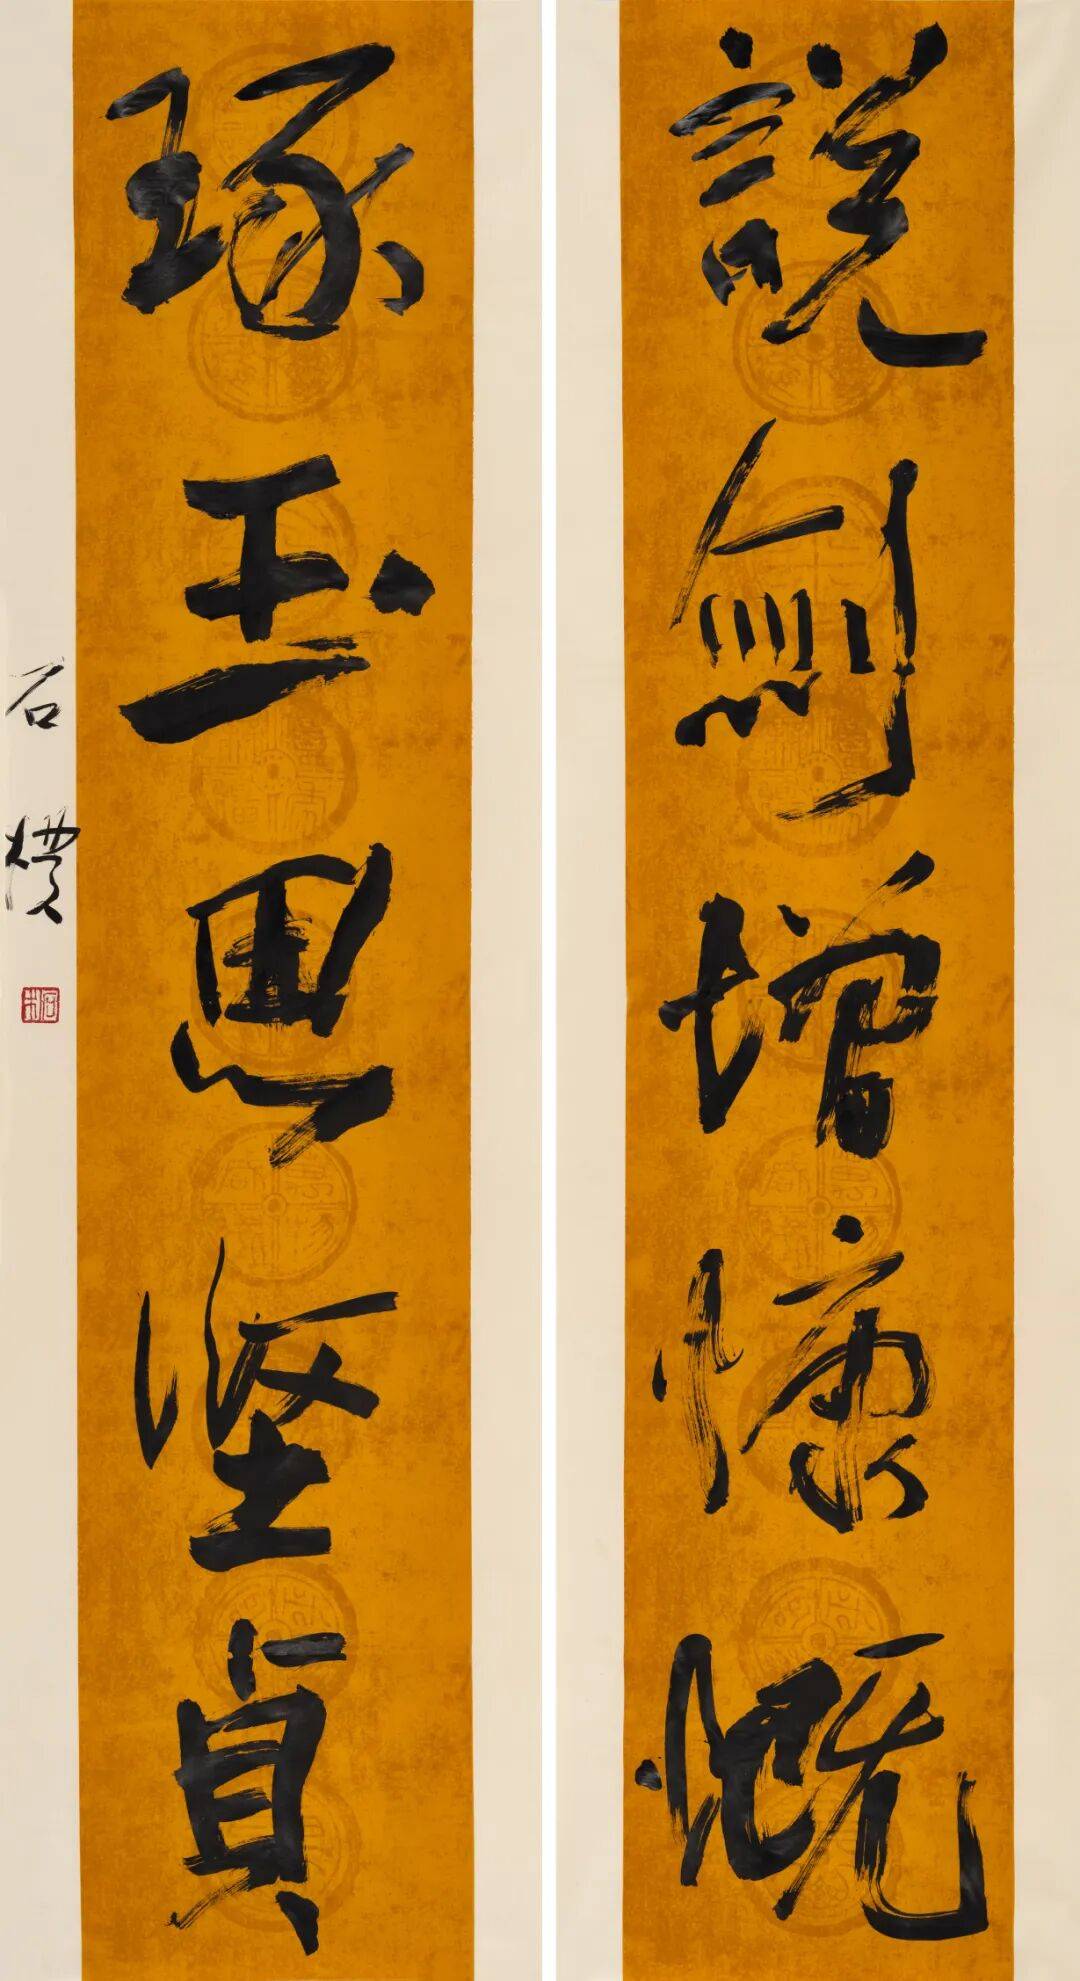 說劍增慷慨
琢玉思坚貞
石